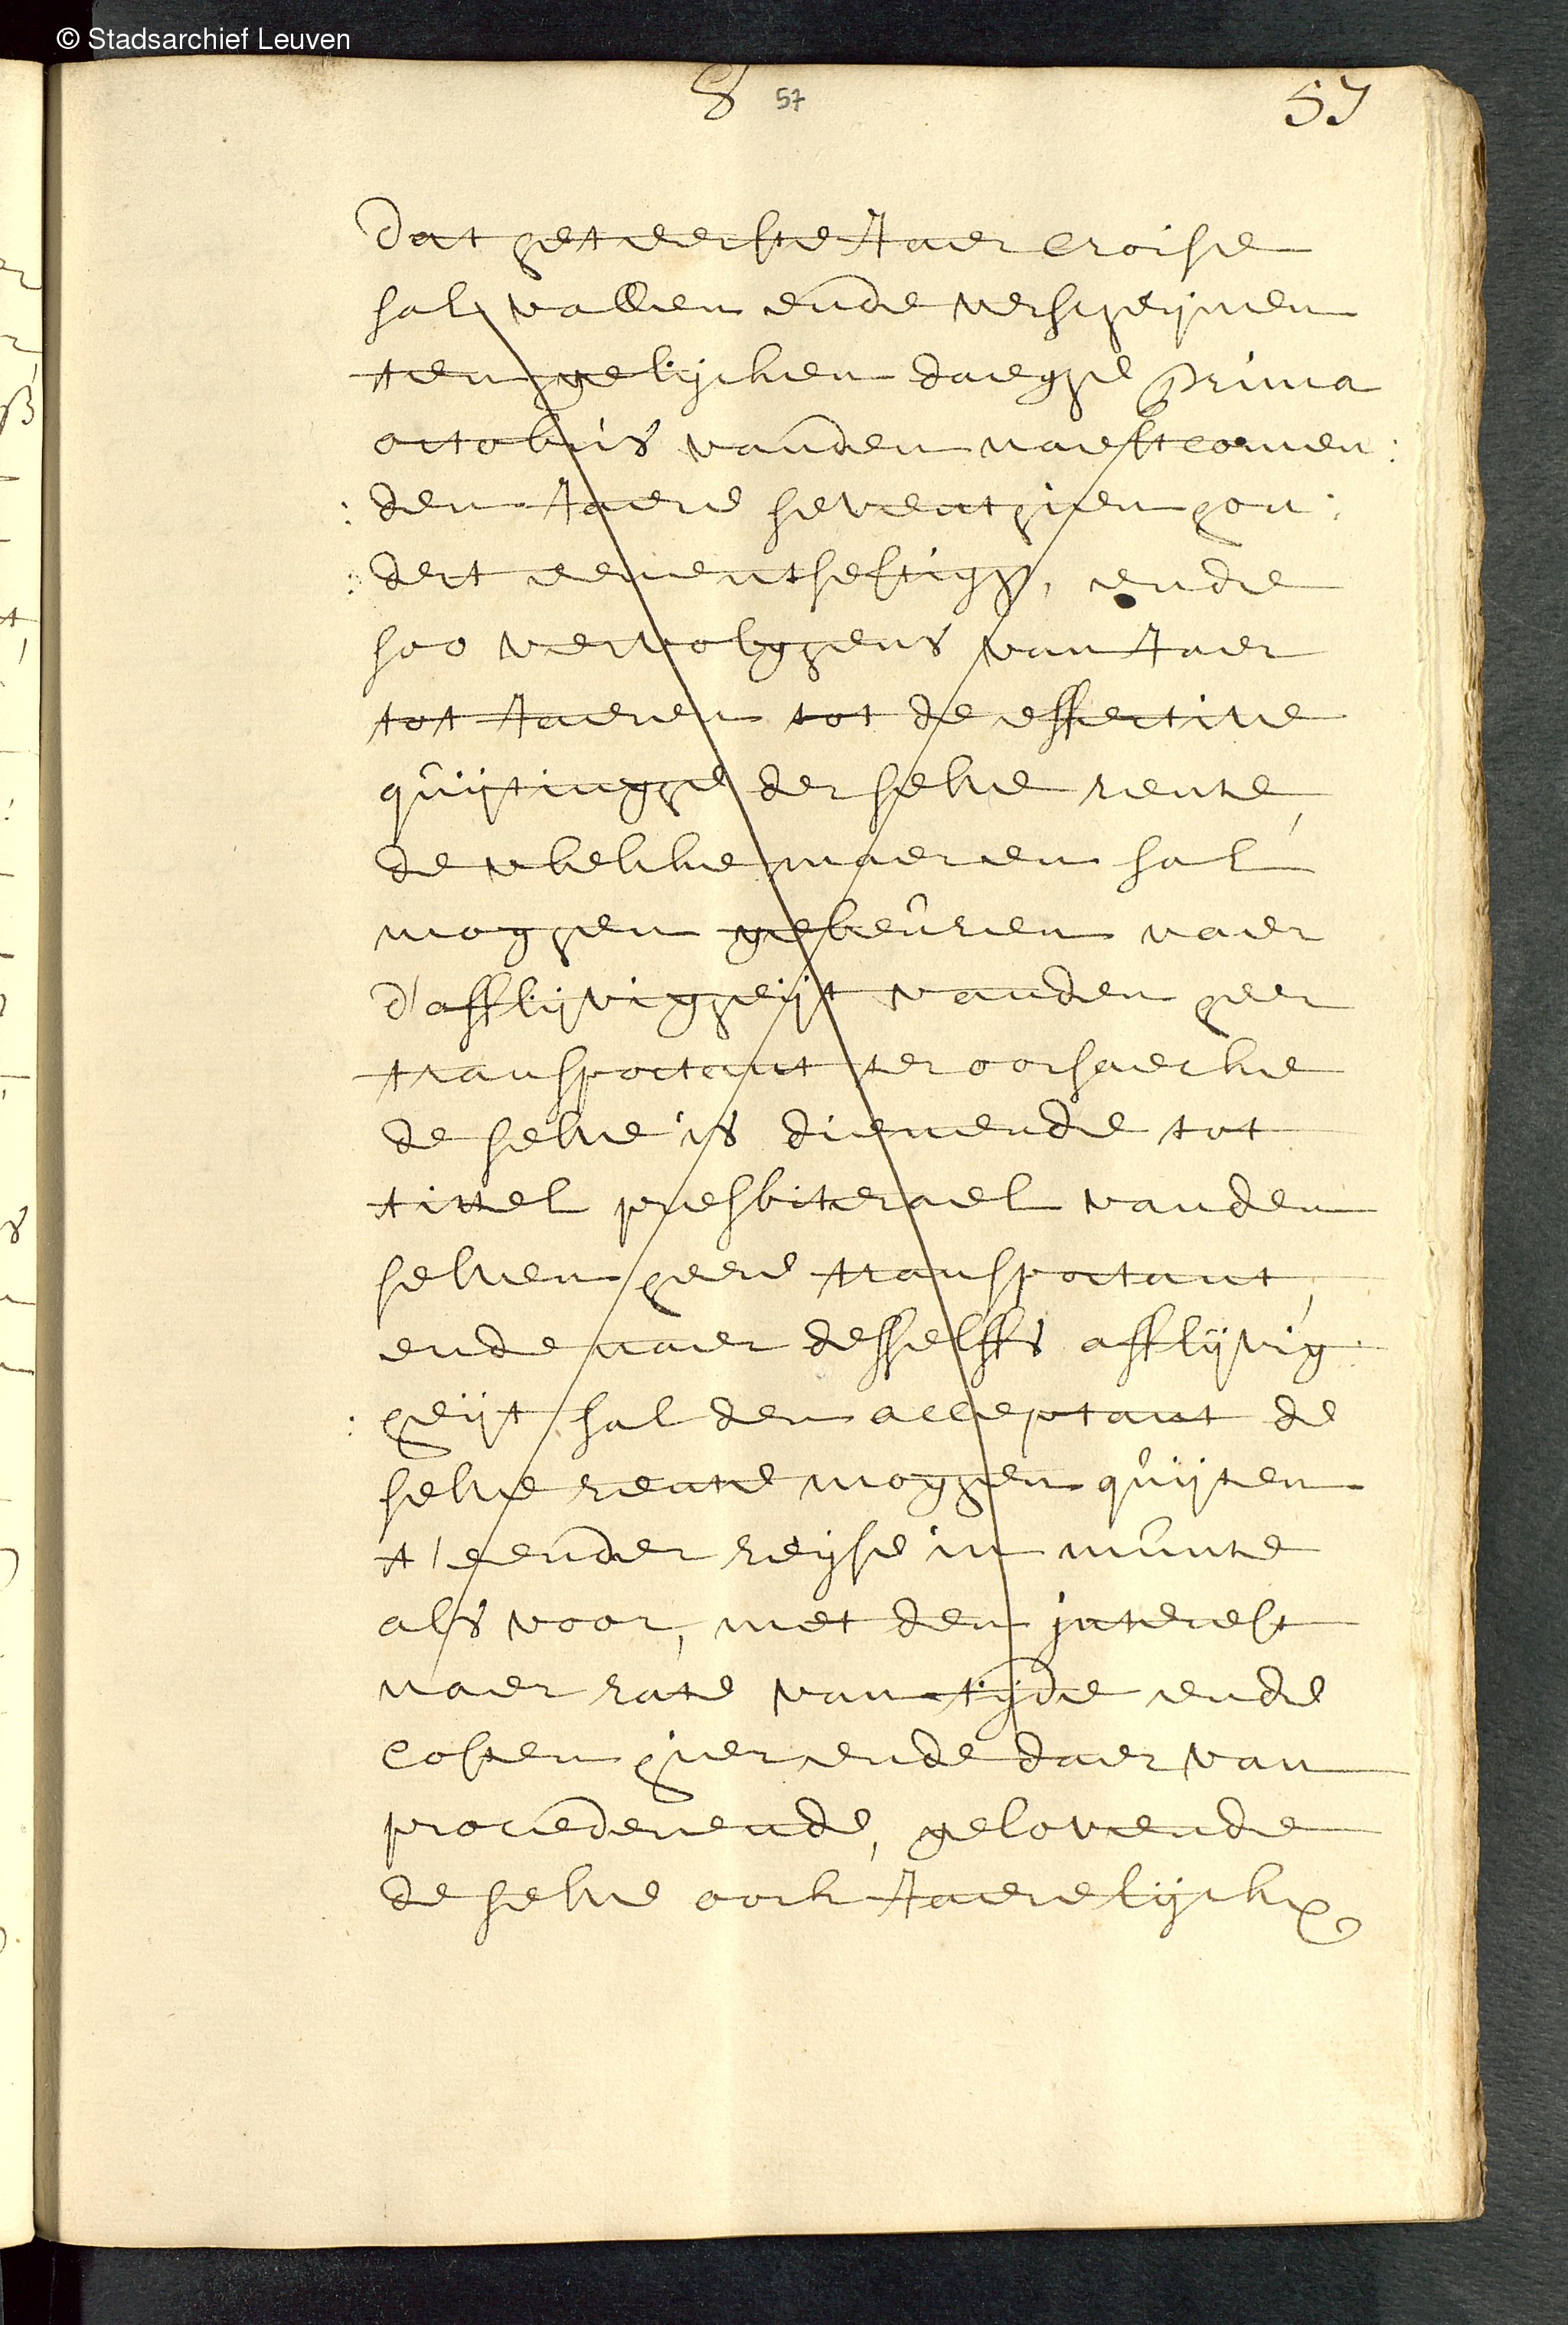 © Stadsarchief Leuven
8 57 57
Dat het eerste Jaer croise
sal vallen ende verscheijnen
ten gelijcken daeghe prima
octobris vanden naestcomen:
:den Jaere seventhien hon:
:dert eenentsestigh, ende
soo vervolghens van Jaer
tot Jaeren tot de effective
quijtinghe derselve rente,
de welcke maer en sal
moghen gebeuren naer
d'afflijvigheijt vanden heer
transportant ter oorsaecke
de selve is dienende tot
tittel presbiterael vanden
selven heere transportant,
ende naer desselffs afflijvig:
:heijt sal den acceptant de
selve rente moghen quijten
t'eender reijse in munte
als voor, met den interest
naer rate van tijde ende
costen hier ende daer van
procederende, gelovende
de selve oock Jaerelijckx